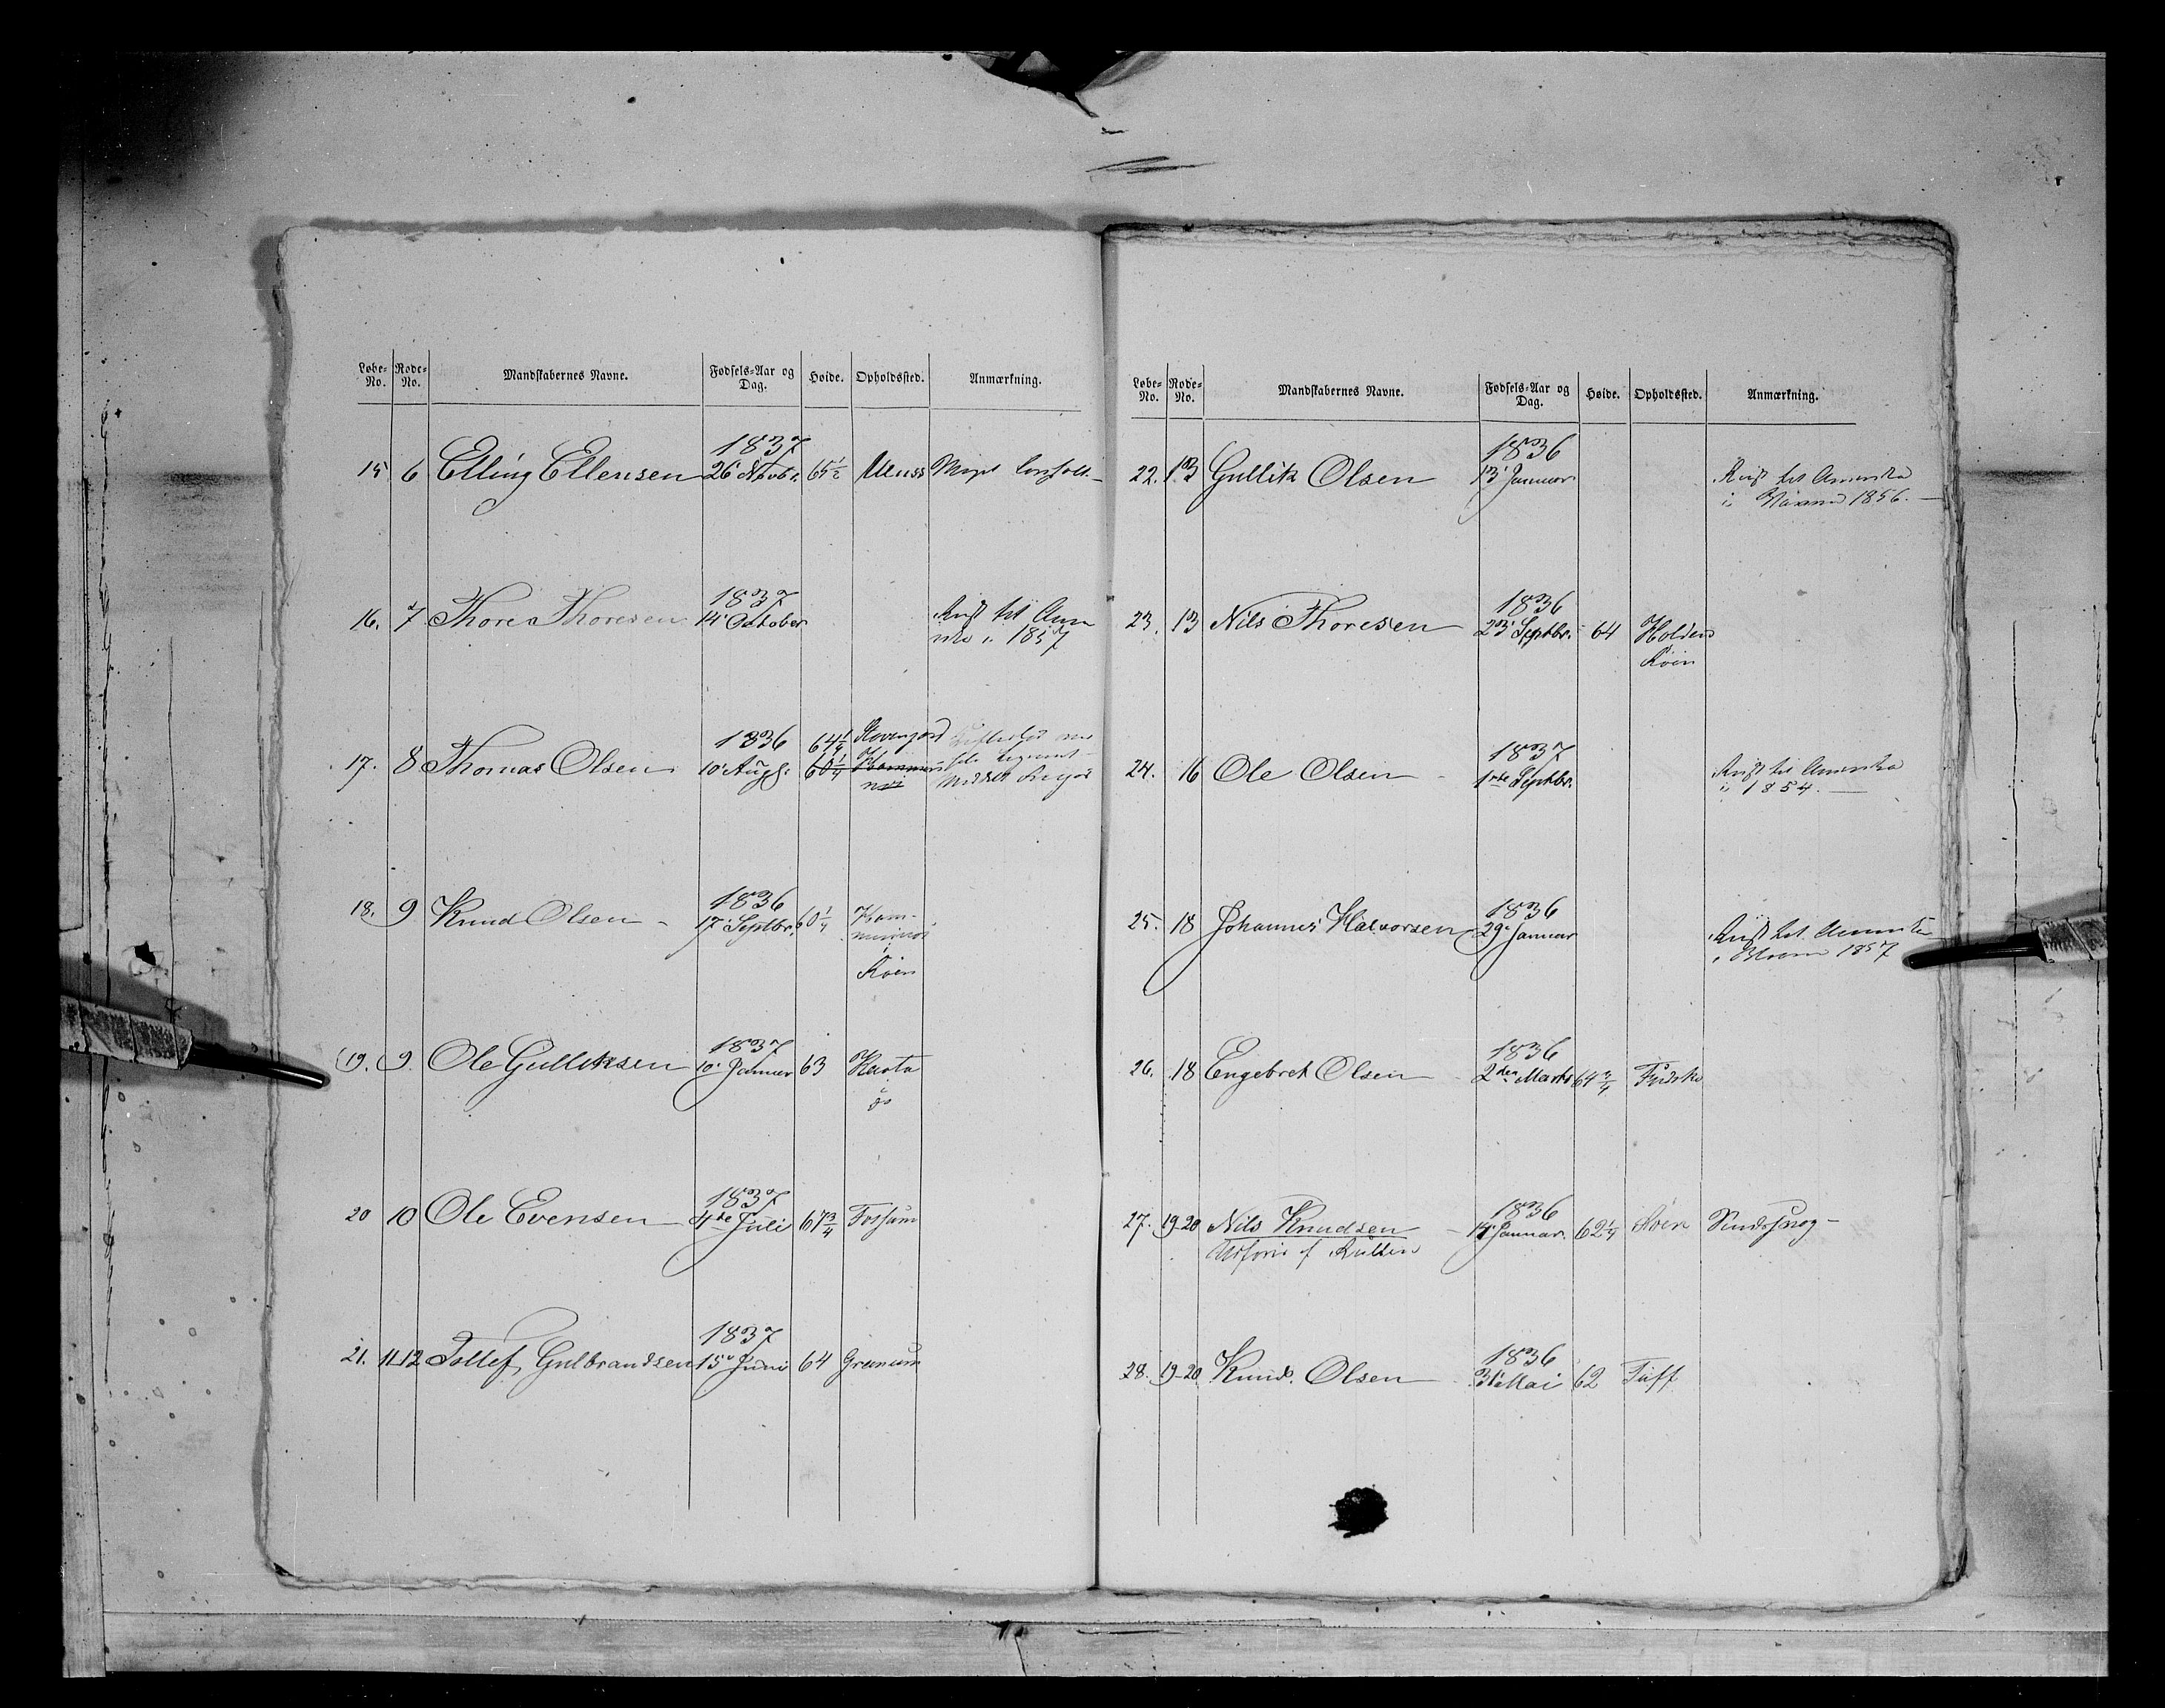 Løbe-No. Rode-No. Mandskabernes Navne. Fødsels-Aar og Dag. Høide. Opholdssted. Anmærkning.
15 6 Elling Ellensen 1837 26' Novbr. 65 1/2
16. 7 Thore Thoresen 1837 14' October Reist til Ame
rika i 1857
17. 8 Thomas Olsen 1836 10' Augs. 64 1/4
60 1/4
18. 9 Knud Olsen 1836 17' Septbr. 60 1/4
i
Røen
19. 9. Ole Gulliksen 1837 10' Januar 63
20 10 Ole Evensen 1837 4de Juli 67 3/4 Fossum
21. 11-12 Tollef Gulbrandsen 1837 15' Juni 64 Grunum
Løbe-No. Rode-No. Mandskabernes Navne. Fødsels-Aar og Dag. Høide. Opholdssted. Anmærkning.
22. 13 Gullik Olsen 1836 13' Januar Reist til Amerika
i 1856.
23. 13 Nils Thoresen 1836 23' Septbr. 64
Røen
24. 16 Ole Olsen 1837 1ste Septbr. Reist til Amerika
i 1854.
25. 18 Johannes Halvorsen 1836 29' Januar Reist til Amerika
i 1857
26. 18 Engebret Olsen 1836 2den Marts 64 3/4
27. 19-20 Nils Knudsen 1836 14' Januar. 62 1/4 Røen
28. 19-20 Knud Olsen 1836 31' Mai 62 Tuff